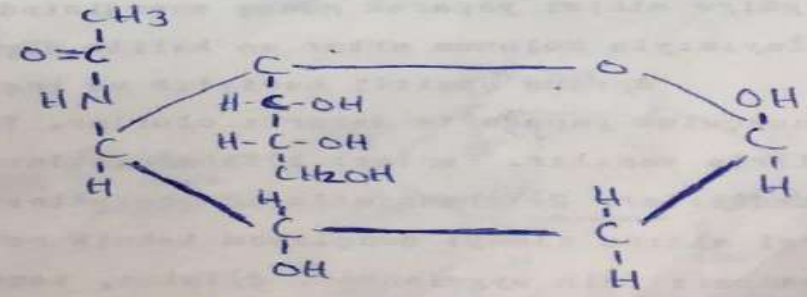 CH3
O=C
HN
C
H
C O
H-C-OH
H-C-OH
CH2OH
H
C
OH
H
C
H
OH
C
H